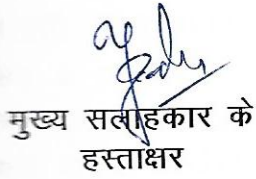 मुख्य सलाहकार के
हस्ताक्षर